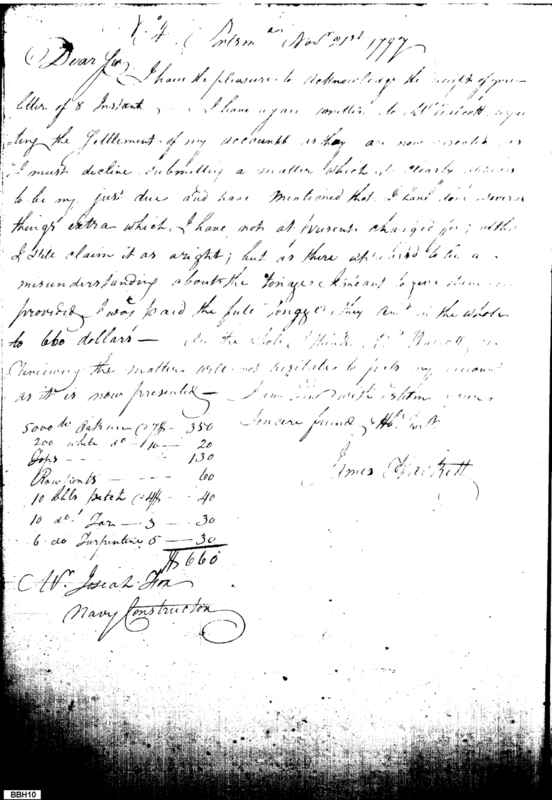 No. 4 Portsmo. Novr. 21st 1797
Dear Sir,
I have the pleasure to acknowledge the receipt of your
letter of 8 Instant I have again written to Mr
ting the Settlement of my accounts as they are now as
I must decline submitting a matter which is clearly
to be my just due and have mentioned that I have done several
things extra which I have not at present charged for; altho
I still claim it as a right; but as there appeared to be a
misunderstanding about the Tonage I meant to give them in
provided I was paid the full Tonage they amt. in the whole
to 660 dollars — On the whole I think Mr
reviewing the matter will not hesitate to pass my account
as it is now presented — I am Sir with esteem your
Sincere friend &
James Hackett
5000 lb Oakum @ 7$ — 350
200 white do — 10 — 20
Tops — 130
— 60
10 bbls pitch @ 4$ — 40
10 do. Tar — 3 — 30
6 do Turpentine 5 — 30
$ 660
Mr. Josiah Fox
Navy Constructor
BBH10